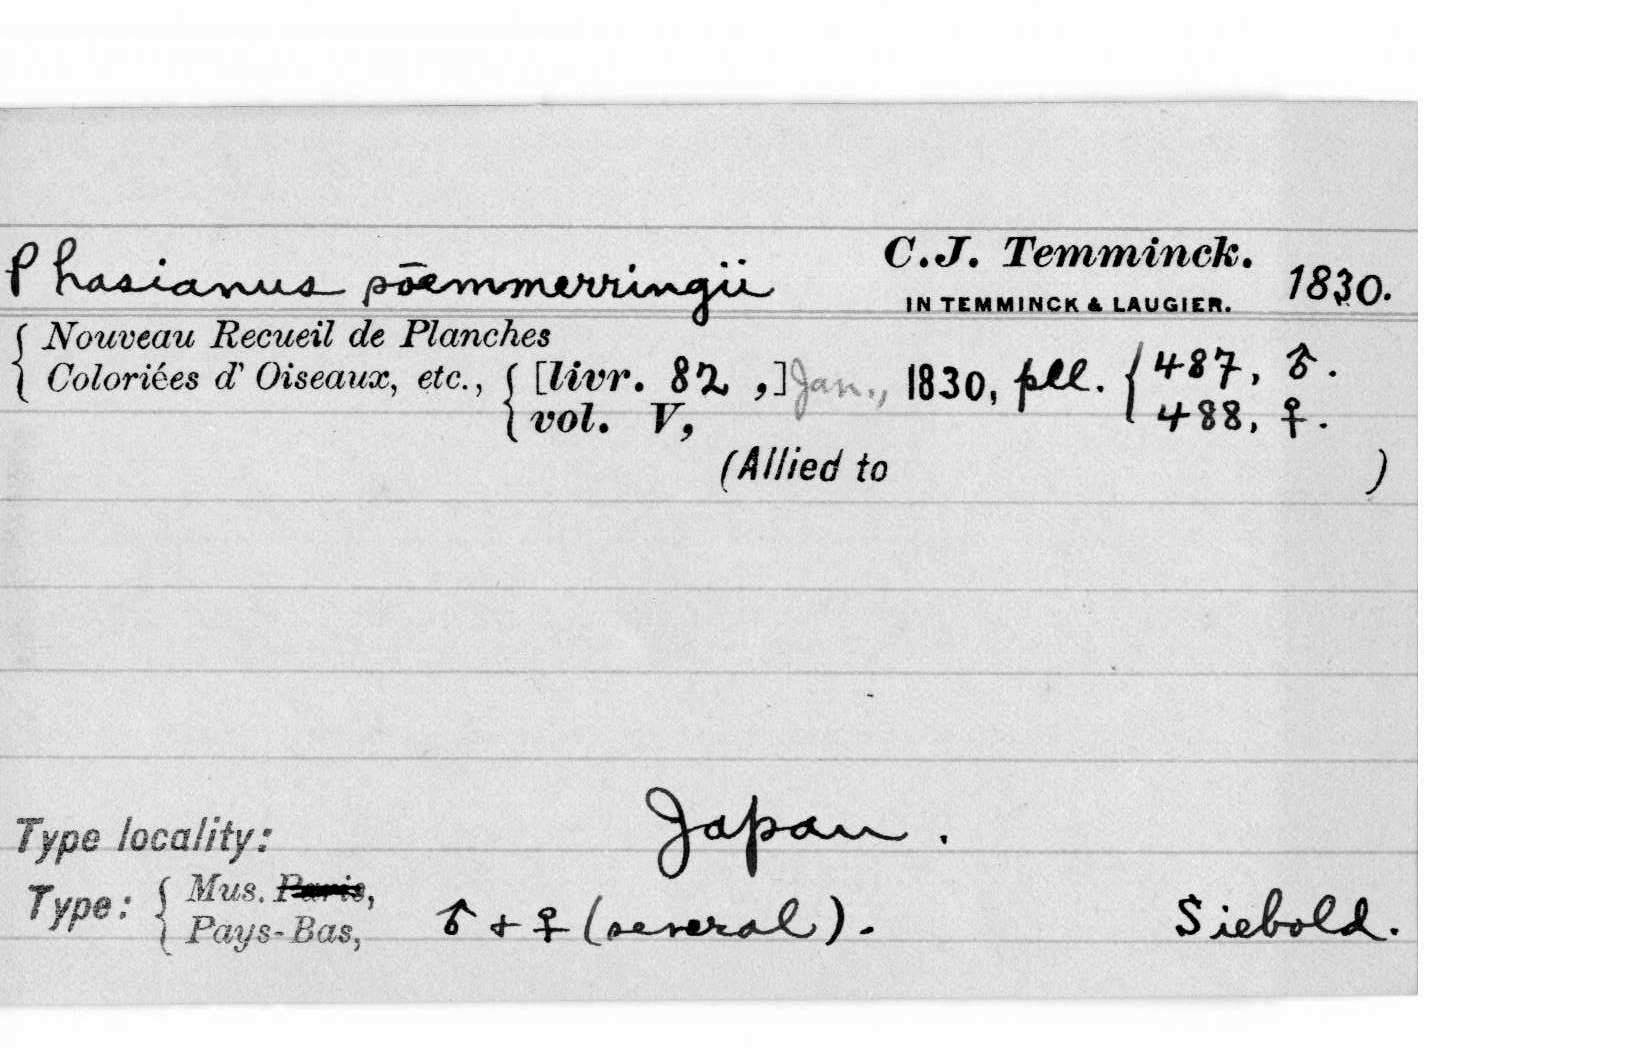 Phasianus sōemmerringii C.J. Temminck. 1830.
IN TEMMINCK & LAUGIER.
Nouveau Recueil de Planches
Coloriées d' Oiseaux, etc., [livr. 82 ,] Jan., 1830, pll. 487, ♂.
vol. V, 488, ♀.
(Allied to )
Type locality: Japan.
Type: Mus. Paris,
Pays-Bas, ♂ + ♀ (several). Siebold.